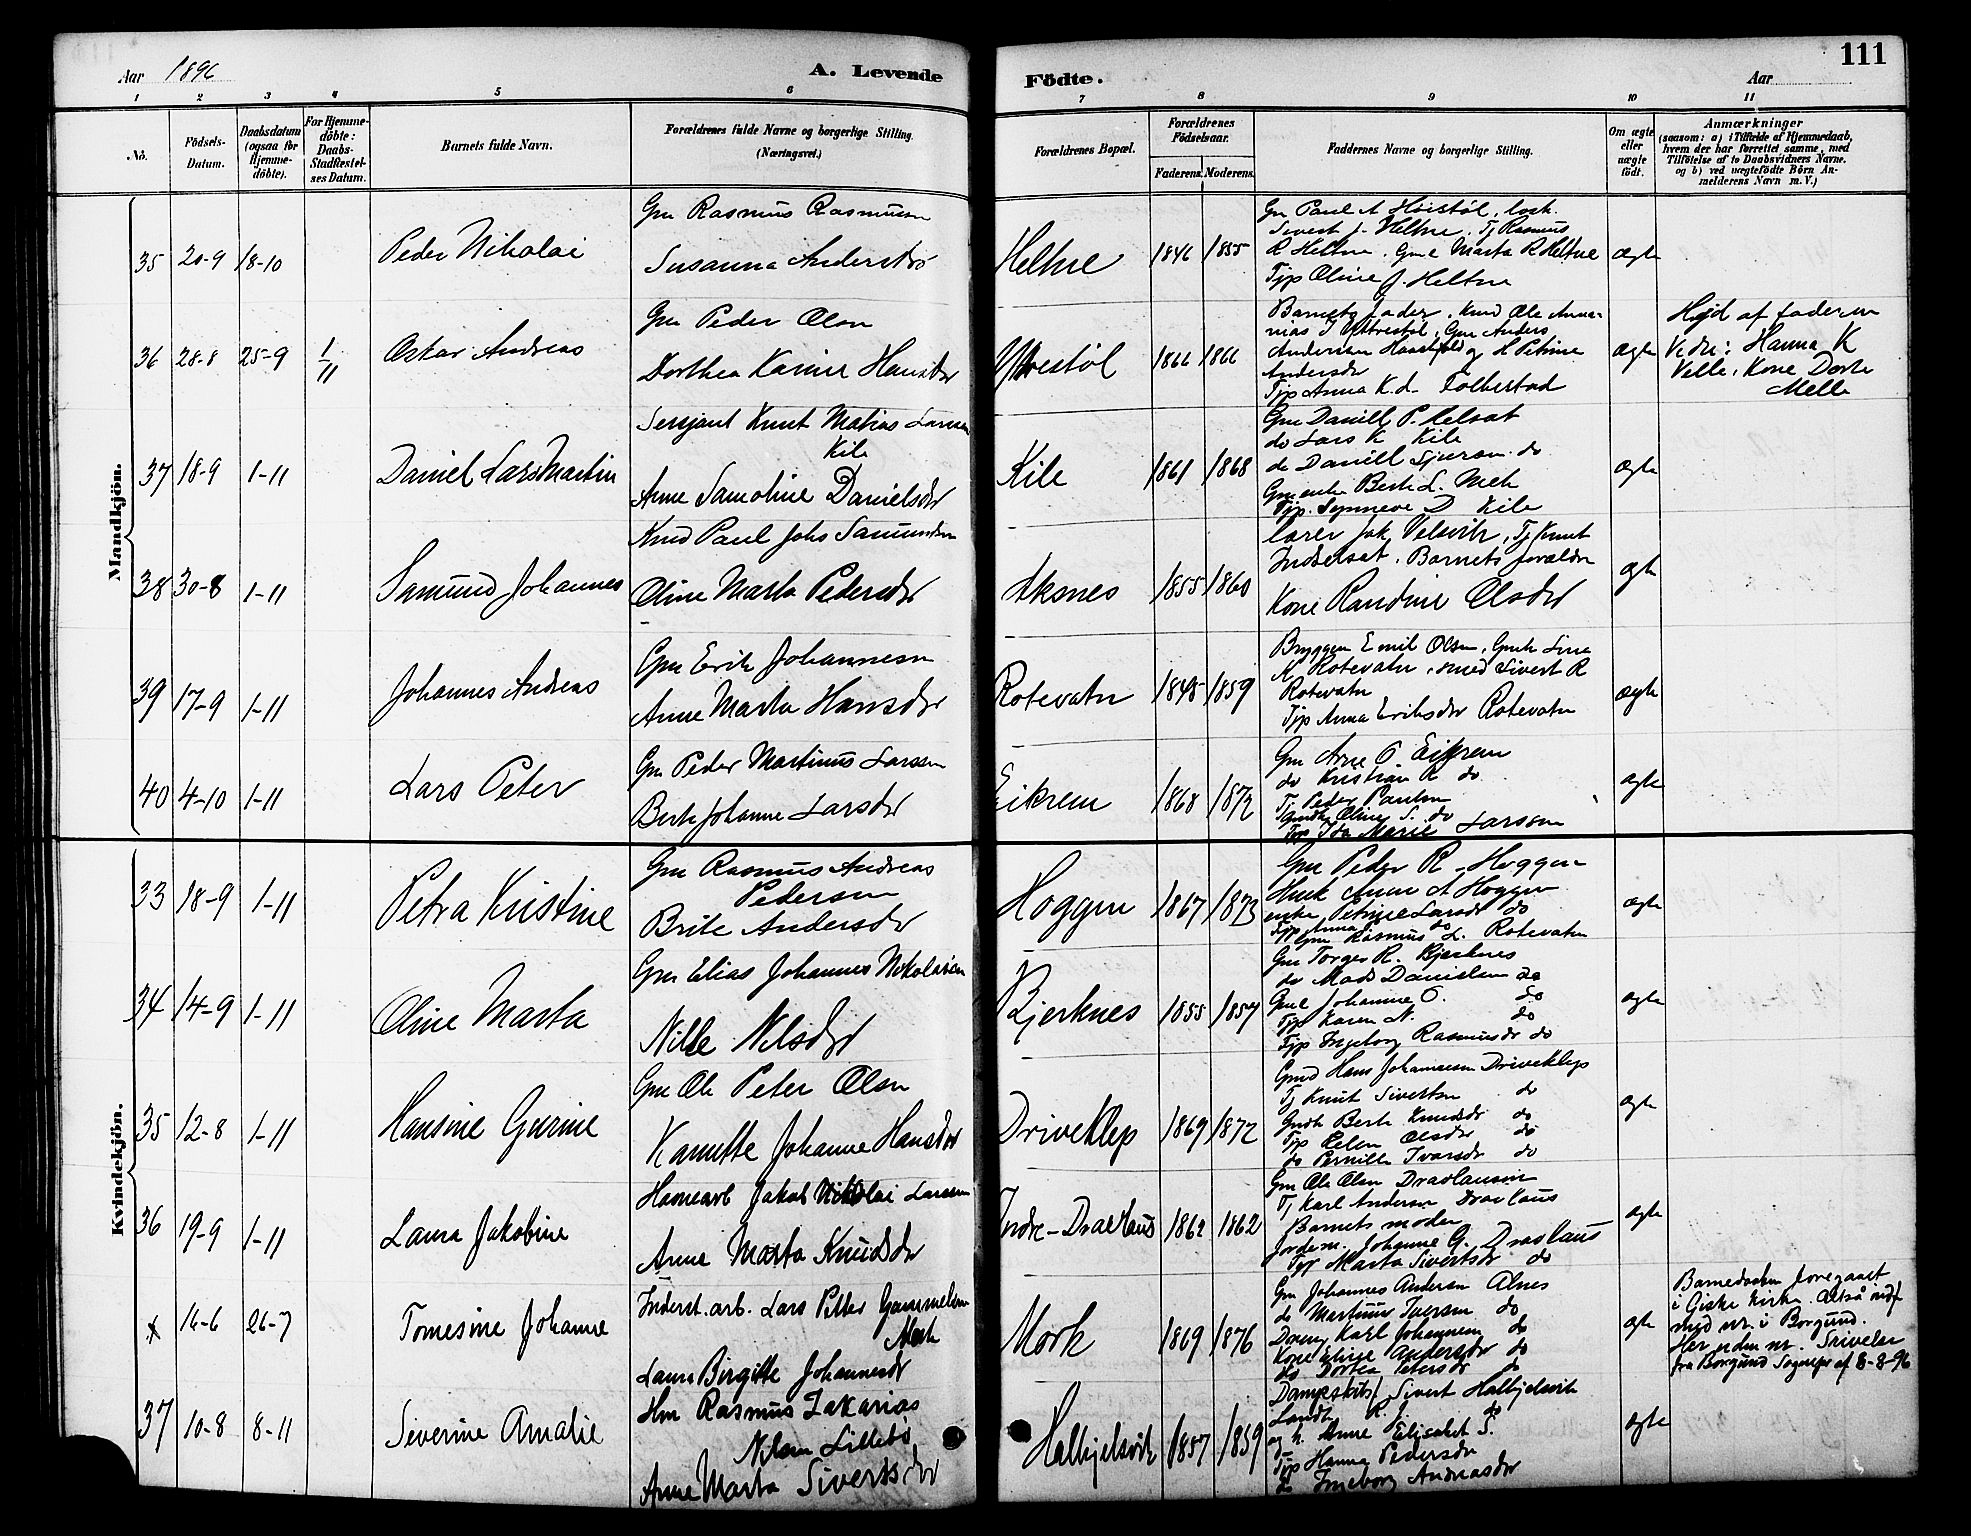 Aar 1896
A. Levende
Födte.
Aar
111
1 2 3 4 5 6 7 8 9 10 11
No.
Födsels-Datum.
Daabsdatum (ogsaa for Hjemme-döbte).
For Hjemme-döbte: Daabs-Stadfæstel-ses Datum.
Barnets fulde Navn.
Forældrenes fulde Navne og borgerlige Stilling.
(Næringsvei.)
Forældrenes Bopæl.
Forældrenes Födselsaar.
Faderens. Moderens.
Faddernes Navne og borgerlige Stilling.
Om ægte eller uægte födt.
Anmærkninger
(saasom: a) i Tilfælde af Hjemmedaab, hvem der har forrettet samme, med Tilföielse af to Daabsvidners Navne. og b) ved uægtefödte Börn Anmelderens Navn m. V.)
Mandkjön.
35 20-9 18-10
Peder Nikolai
Gm Rasmus Rasmussen
Susanna Andersdr
Heltne
1846 1855
Gm Paul A Høistøl
Sivert J. Heltne. Tj Rasmus
R Heltne. Gme Marta R Heltne
Tjp Oline J. Heltne
ægte
36 28-8 25-9 1/11
Oskar Andreas
Gm Peder Olsn
Dorthea Karine Hansdr
Ytrestøl
1866 1866
Barnets fader. Knud Ole Ananias I Ytrestøl. Gm Anders
Andersen
og H Petrine
Andersdr
Tjp Anna K.d. Folkestad
ægte
Hjd af faderen
Vedn: Hanna K
Velle. Kone Dorte
Melle
37 18-9 1-11
Daniel Lars Martin
Sersjant Knut Matias Larssen
Kile
Anne Samoline Danielsdr
Kile
1861 1868
Gm Daniel P. Helset
do Lars K Kile
do Daniel Sjurson do
Gm enke Berte L.
Tjp. Synneve D Kile
ægte
38 30-8 1-11
Samund Johannes
Knud Paul Johs Samundsen
Oline Marta Pedersdr
Aksnes
1855 1860
Lærer Jak Velsvik. Tj Knut
Indreset. Barnets forældre
Kone Randine Olsdr
ægte
39 17-9 1-11
Johannes Andreas
Gm Erik Johannesn
Anne Marta Hansdr
Rotevatn
1848 1859
Emil Olsen. Gmk Line
K Rotevatn. smed Sivert R
Rotevatn
Tjp Anna Eriksdr Rotevatn
ægte
40 4-10 1-11
Lars Peter
Gm Peder Martinus Larssen
Berte Johanne Larsdr
Eikrem
1868 1872
Gm Arne O. Eikrem
do Kristian R do
Tj Peder Paulsen
Gmdtr Oline S. do
Tjp Ida Marie Larssen
ægte
Kvindekjön.
33 18-9 1-11
Petra Kristine
Gm Rasmus Andreas
Pedersen
Brite Andersdr
Hoggen
1867 1873
Gm Peder R. Hoggen
Anne A Hoggen
enke Petrine Larsdr do
Tjp Anna do
Gm Rasmus L. Rotevatn
ægte
34 14-9 1-11
Oline Marta
Gm Elias Johannes Nikolaisen
Nille Nilsdr
Bjerknes
1855 1857
Gm Torger R. Bjerknes
do Mads Danielsen do
Gme Johanne O. do
Tjp Karen N. do
Tjp Ingeborg Rasmusdr do
ægte
35 12-8 1-11
Hansine Gurine
Gm Ole Peter Olsn
Kanutte Johanne Hansdr
Driveklep
1869 1872
Gmd Hans Johannesen Driveklep
Tj Knut Sivertsen do
Gmdtr Berte Knudsdr do
Tjp Elen Olsdr do
do Pernille Ivarsdr do
ægte
36 19-9 1-11
Laura Jakobine
Jakob Nikolai Larssen
Anne Marta Knudsdr
Indre-Dravlaus
1862 1862
Gm Ole Olsen Dravlausvik
Tj Karl Andersen Dravlaus
Barnets moder
Jordem. Johanne G. Dravlaus
Tjp Marta Sivertsdr do
ægte
x 16-6 26-7
Tomesine Johanne
Inderst. arb. Lars Petter Gammelsen
Mork
Laura Birgitte Johannesdr
Mork
1869 1876
Gm Johannes Andersen Alnes
do Martinus Iversen do
Dreng Karl Johannesen do
Kone Eline Andersdr do
do Dortea Petersdr do
ægte
Barnedaaben foregaaet
i Giske Kirke. Altså indf
med nr. i Borgund.
Her uden nr. Skrivelse
fra Borgund Sognepr af 8-8-96
37 10-8 8-11
Severine Amalie
Hm Rasmus Zakarias
Nilsen Lillebø
Anne Marta Sivertsdr
Halkjelsvik
1857 1859
Dampskibsf Sivert Halkjelsvik
Landh R. J. do
og h. Anne Elisabet S.
Tjp Hanna Pedersdr
do Ingeborg Andreasdr
ægte